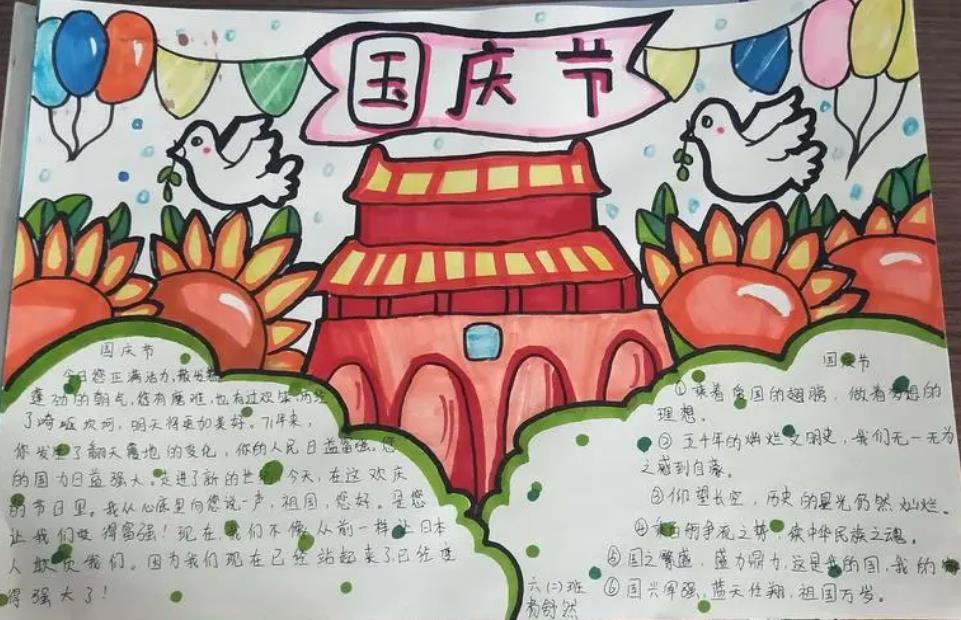 国庆节
国庆节
今日您正满活力,散发着
蓬勃的朝气,您有磨难,也有过欢乐,历经
了崎岖坎坷,明天将更加美好。71年来,
你发生了翻天覆地的变化,你的人民日益富强。您
的国力日益强大。走进了新的世纪,今天,在这欢庆
的节日里。我从心底里向您说一声,祖国,您好。是您
让我们变得富强!现在,我们不像从前一样让日本
人欺负我们。因为我们现在已经站起来了,已经变
得强大了!
国庆节
①乘着爱国的翅膀,做着梦想的
理想。
②五千年的灿烂文明史,我们无一无为
之感到自豪。
③仰望长空,历史的星光仍然灿烂。
④乘百舸争流之势,续中华民族之魂。
⑤国之繁盛,盛力鼎力,这是我的国,我的
⑥国兴军强,蓝天任翔,祖国万岁。
六(二)班
杨舒然